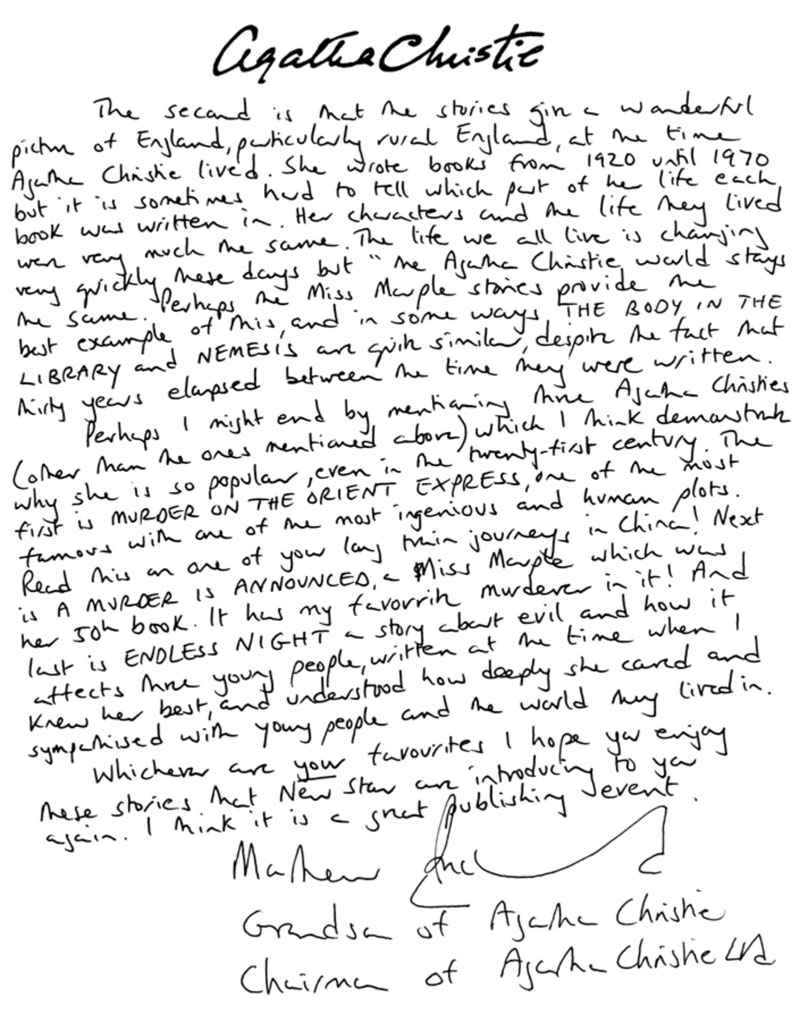 Agatha Christie
The second is that the stories give a wonderful
picture of England, particularly rural England, at the time
Agatha Christie lived. She wrote books from 1920 until 1970
but it is sometimes hard to tell which part of her life each
book was written in. Her characters and the life they lived
were very much the same. The life we all live is changing
very quickly these days but "the Agatha Christie world stays
the same. Perhaps the Miss Marple stories provide the
best example of this, and in some ways, THE BODY IN THE
LIBRARY and NEMESIS are quite similar, despite the fact that
thirty years elapsed between the time they were written.
Perhaps I might end by mentioning three Agatha Christies
(other than the ones mentioned above) which I think demonstrate
why she is so popular, even in the twenty-first century. The
first is MURDER ON THE ORIENT EXPRESS, one of the most
famous with one of the most ingenious and human plots.
Read this on one of your long train journeys in China! Next
is A MURDER IS ANNOUNCED, a Miss Marple which was
her 50th book. It has my favourite murderer in it! And
last is ENDLESS NIGHT a story about evil and how it
affects three young people, written at the time when I
knew her best, and understood how deeply she cared and
sympathised with young people and the world they lived in.
Whichever are your favourites I hope you enjoy
these stories that New Star are introducing to you
again. I think it is a great publishing event.
Mathew
Grandson of Agatha Christie
Chairman of Agatha Christie Ltd